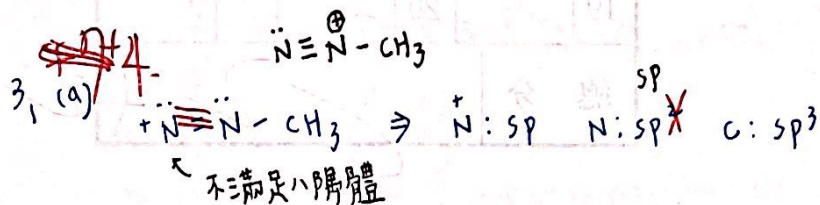 +4.
N̈≡N⊕-CH3
3, (a)
+N̈≡N̈-CH3 ⇒ N⁺: sp N: sp² sp C: sp³
不滿足八隅體